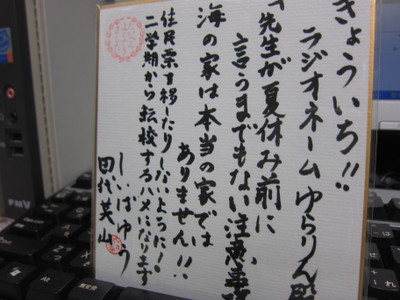 きょういち!!
ラジオネームゆらりん
「先生が夏休み前に
言うまでもない注意事項
海の家は本当の家では
ありません!!
住民票を移したりしないように!
二学期から転校するハメになります
しいばゆう
田代英山
FMV